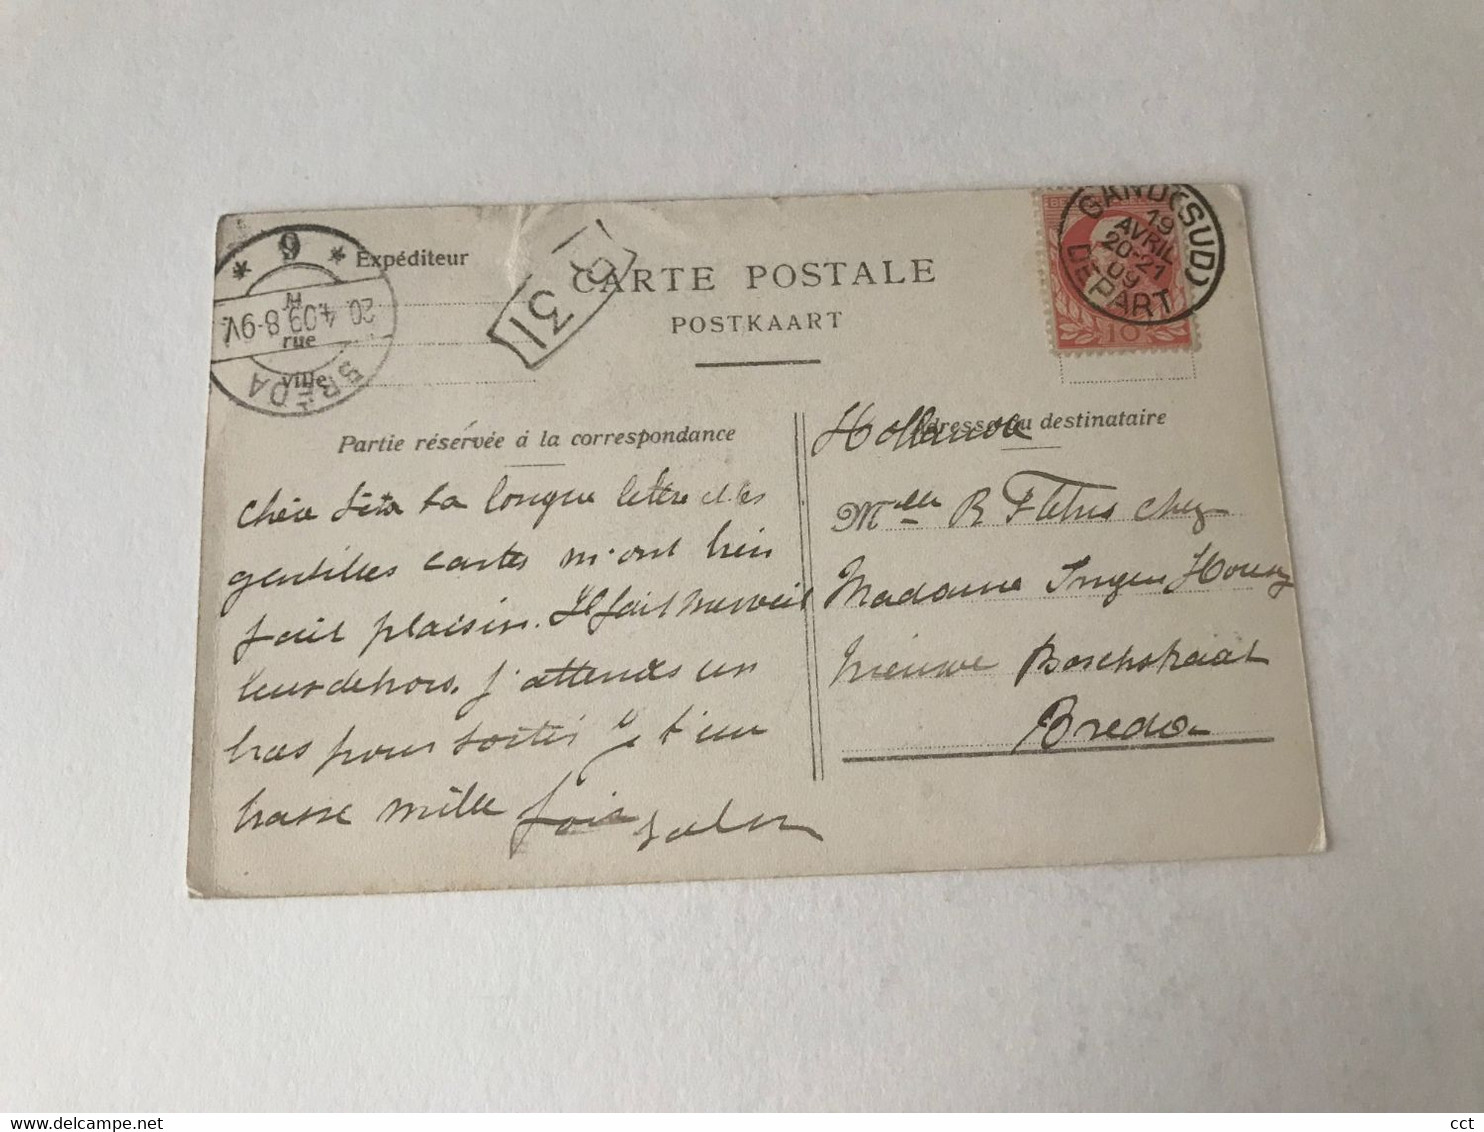 CARTE POSTALE
POSTKAART
Expéditeur
M
rue
ville
6
20. 4.09 8-9V.
BREDA
31
GAND (SUD)
19
AVRIL
20-21
09
DEPART
10
Partie réservée à la correspondance
Adresse du destinataire
chère ta longue lettre et les
gentilles cartes m'ont bien
fait plaisir. Il fait merveil
leux dehors. j'attends un
bras pour sortir je t'em
brasse mille fois
Hollande
Melle R chez
Madame Ingen Housz
Nieuwe Boschstraat
Breda
cct